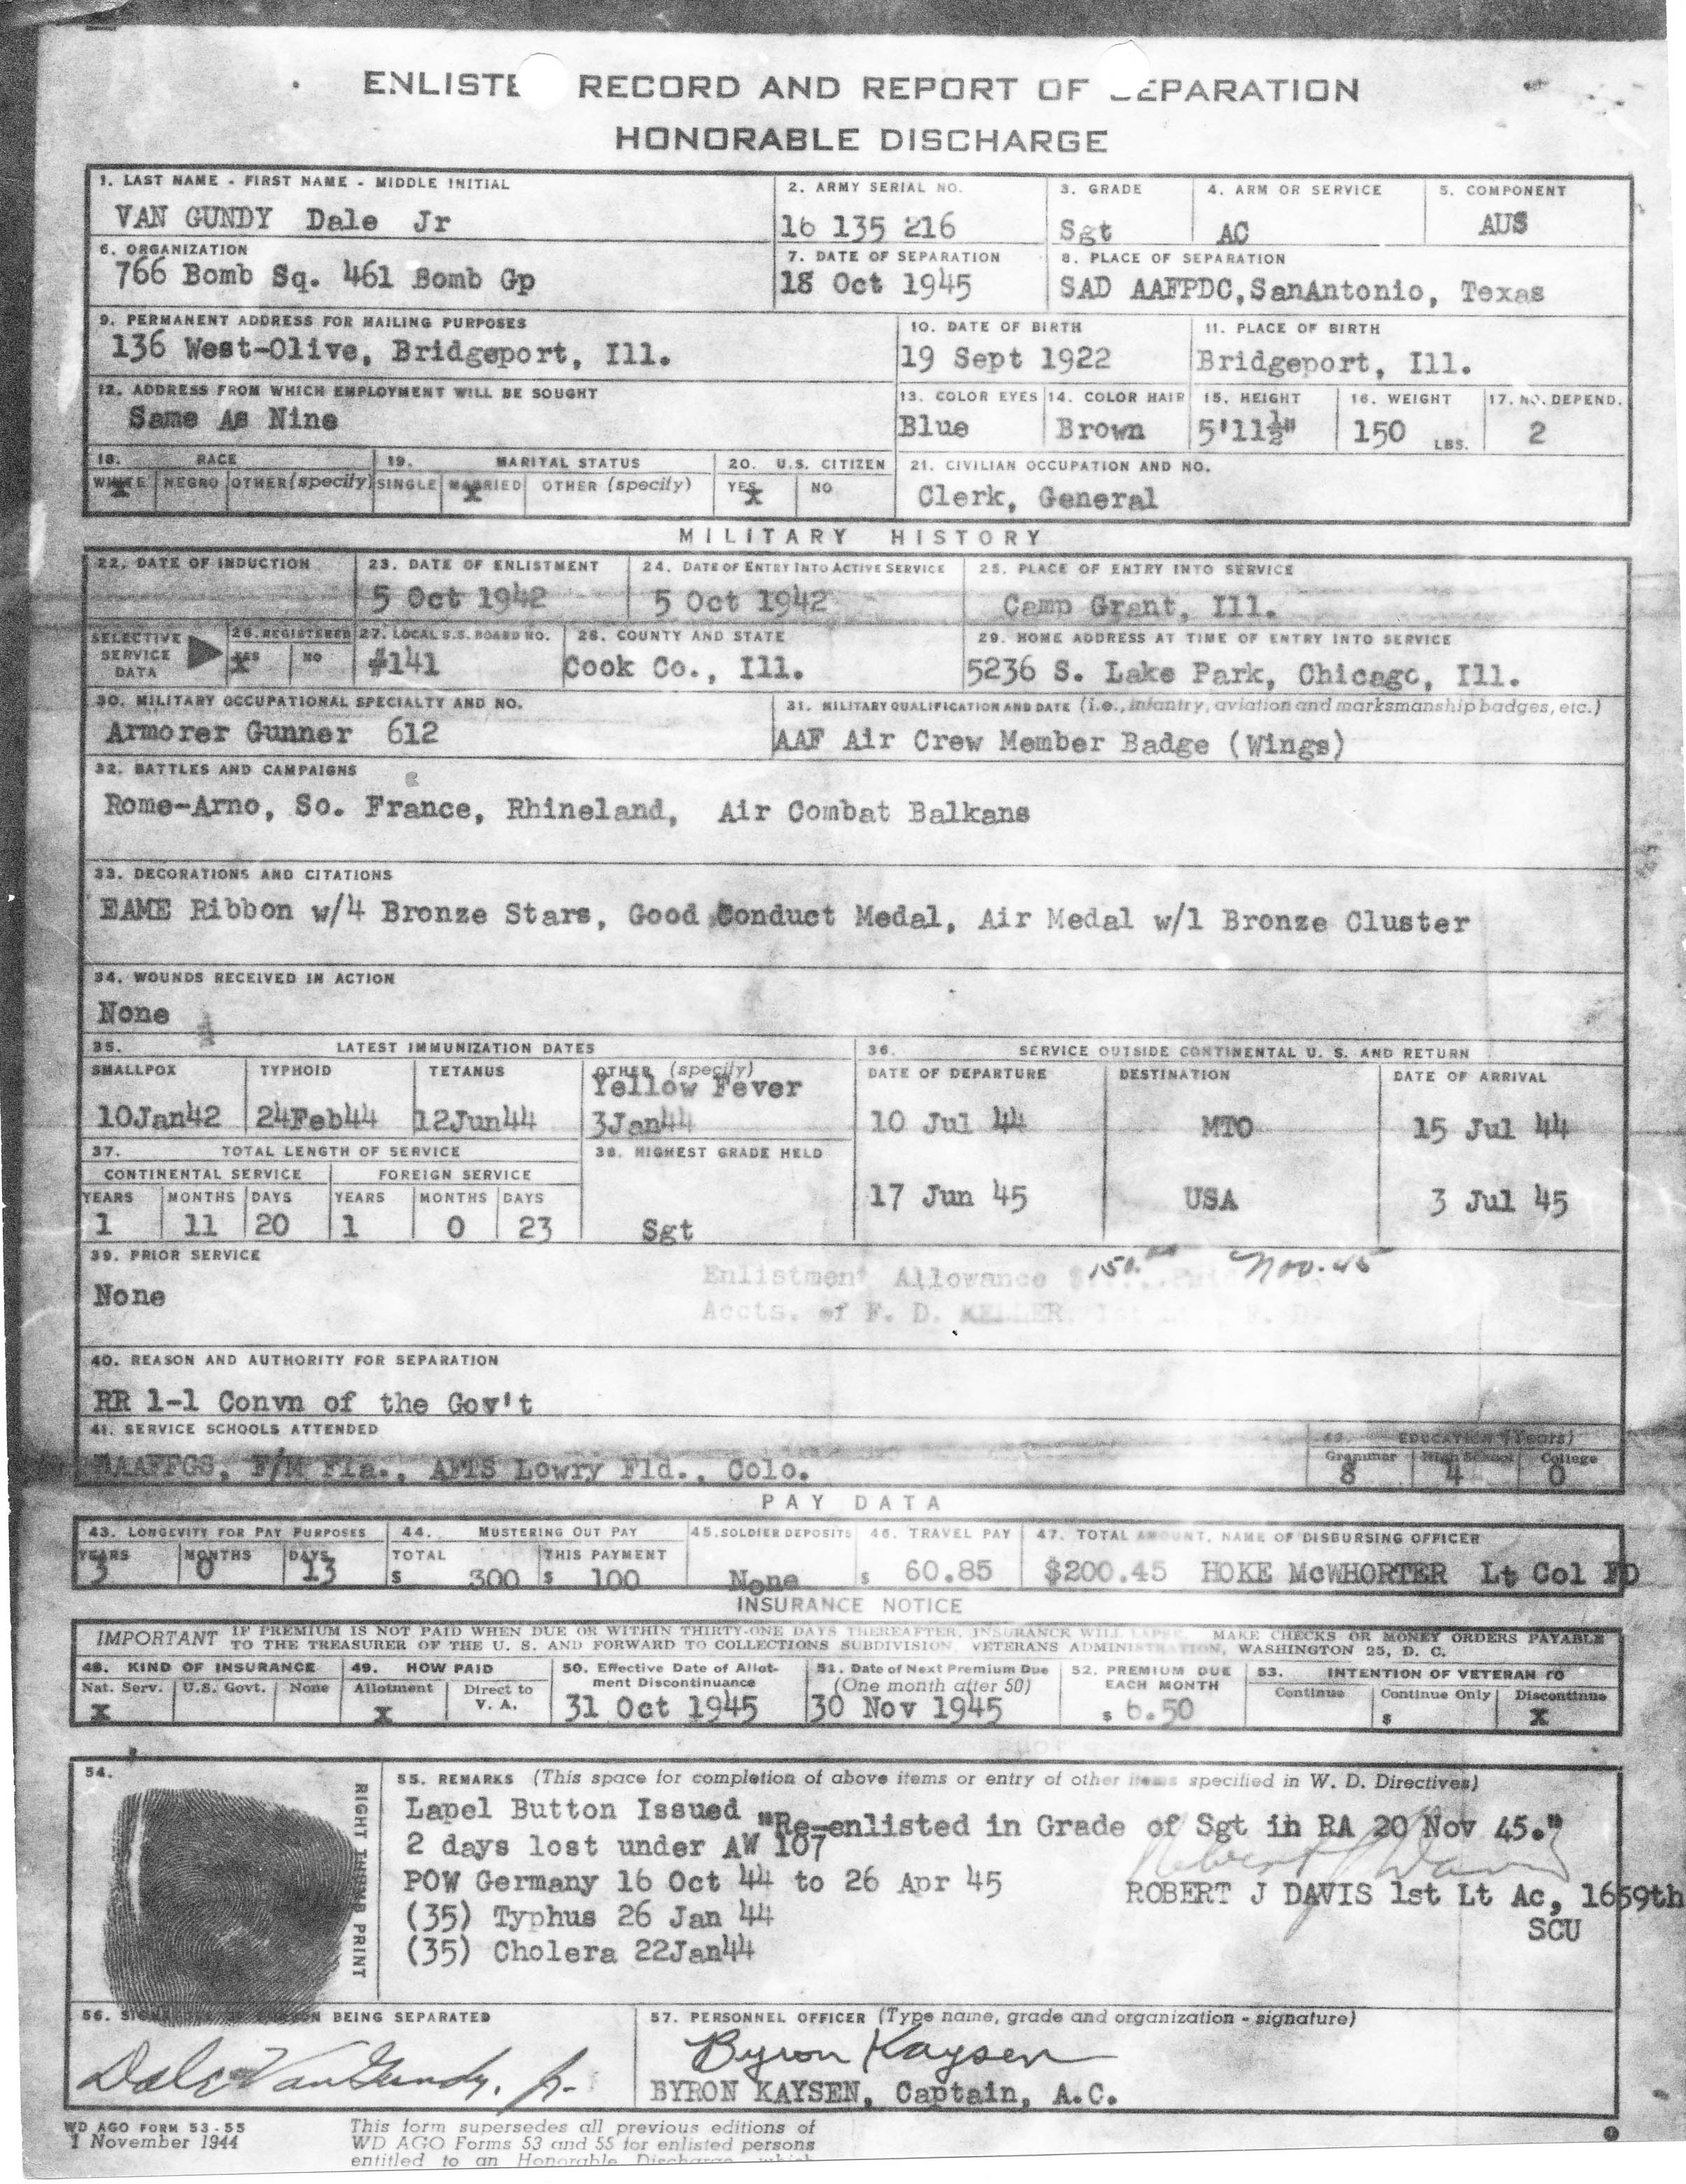 ENLISTE RECORD AND REPORT OF EPARATION
HONORABLE DISCHARGE
1. LAST NAME - FIRST NAME - MIDDLE INITIAL
VAN GUNDY Dale Jr
2. ARMY SERIAL NO.
16 135 216
3. GRADE
Sgt
4. ARM OR SERVICE
AC
5. COMPONENT
AUS
6. ORGANIZATION
766 Bomb Sq. 461 Bomb Gp
7. DATE OF SEPARATION
18 Oct 1945
8. PLACE OF SEPARATION
SAD AAFPDC, SanAntonio, Texas
9. PERMANENT ADDRESS FOR MAILING PURPOSES
136 West-Olive, Bridgeport, Ill.
10. DATE OF BIRTH
19 Sept 1922
11. PLACE OF BIRTH
Bridgeport, Ill.
12. ADDRESS FROM WHICH EMPLOYMENT WILL BE SOUGHT
Same As Nine
13. COLOR EYES
Blue
14. COLOR HAIR
Brown
15. HEIGHT
5'11½"
16. WEIGHT
150 LBS.
17. NO. DEPEND.
2
18. RACE
WHITE NEGRO OTHER (specify)
X
19. MARITAL STATUS
SINGLE MARRIED OTHER (specify)
X
20. U.S. CITIZEN
YES NO
X
21. CIVILIAN OCCUPATION AND NO.
Clerk, General
MILITARY HISTORY
22. DATE OF INDUCTION
23. DATE OF ENLISTMENT
5 Oct 1942
24. DATE OF ENTRY INTO ACTIVE SERVICE
5 Oct 1942
25. PLACE OF ENTRY INTO SERVICE
Camp Grant, Ill.
SELECTIVE SERVICE DATA
26. REGISTERED
YES NO
X
27. LOCAL S.S. BOARD NO.
#141
28. COUNTY AND STATE
Cook Co., Ill.
29. HOME ADDRESS AT TIME OF ENTRY INTO SERVICE
5236 S. Lake Park, Chicago, Ill.
30. MILITARY OCCUPATIONAL SPECIALTY AND NO.
Armorer Gunner 612
31. MILITARY QUALIFICATION AND DATE (i.e., infantry, aviation and marksmanship badges, etc.)
AAF Air Crew Member Badge (Wings)
32. BATTLES AND CAMPAIGNS
Rome-Arno, So. France, Rhineland, Air Combat Balkans
33. DECORATIONS AND CITATIONS
EAME Ribbon w/4 Bronze Stars, Good Conduct Medal, Air Medal w/1 Bronze Cluster
34. WOUNDS RECEIVED IN ACTION
None
35. LATEST IMMUNIZATION DATES
SMALLPOX TYPHOID TETANUS OTHER (specify)
Yellow Fever
10Jan42 24Feb44 12Jun44 3Jan44
36. SERVICE OUTSIDE CONTINENTAL U. S. AND RETURN
DATE OF DEPARTURE DESTINATION DATE OF ARRIVAL
10 Jul 44 MTO 15 Jul 44
17 Jun 45 USA 3 Jul 45
37. TOTAL LENGTH OF SERVICE
CONTINENTAL SERVICE FOREIGN SERVICE
YEARS MONTHS DAYS YEARS MONTHS DAYS
1 11 20 1 0 23
38. HIGHEST GRADE HELD
Sgt
39. PRIOR SERVICE
None
Enlistment Allowance $150.00 Nov. 45
Accts. of F. D. KELLER
40. REASON AND AUTHORITY FOR SEPARATION
RR 1-1 Convn of the Gov't
41. SERVICE SCHOOLS ATTENDED
F/M Fla., AFTS Lowry Fld., Colo.
42. EDUCATION (Years)
Grammar High School College
8 4 0
PAY DATA
43. LONGEVITY FOR PAY PURPOSES
YEARS MONTHS DAYS
3 0 13
44. MUSTERING OUT PAY
TOTAL THIS PAYMENT
$ 300 $ 100
45. SOLDIER DEPOSITS
None
46. TRAVEL PAY
$ 60.85
47. TOTAL AMOUNT, NAME OF DISBURSING OFFICER
$200.45 HOKE McWHORTER Lt Col FD
INSURANCE NOTICE
IMPORTANT IF PREMIUM IS NOT PAID WHEN DUE OR WITHIN THIRTY-ONE DAYS THEREAFTER, INSURANCE WILL LAPSE. MAKE CHECKS OR MONEY ORDERS PAYABLE
TO THE TREASURER OF THE U. S. AND FORWARD TO COLLECTIONS SUBDIVISION, VETERANS ADMINISTRATION, WASHINGTON 25, D. C.
48. KIND OF INSURANCE
Nat. Serv. U.S. Govt. None
X
49. HOW PAID
Allotment Direct to V. A.
X
50. Effective Date of Allotment Discontinuance
31 Oct 1945
51. Date of Next Premium Due
(One month after 50)
30 Nov 1945
52. PREMIUM DUE EACH MONTH
$ 6.50
53. INTENTION OF VETERAN TO
Continue Continue Only Discontinue
$ X
54.
RIGHT THUMB PRINT
55. REMARKS (This space for completion of above items or entry of other items specified in W. D. Directives)
Lapel Button Issued "Re-enlisted in Grade of Sgt in RA 20 Nov 45."
2 days lost under AW 107
POW Germany 16 Oct 44 to 26 Apr 45
Robert J Davis
ROBERT J DAVIS 1st Lt Ac, 1659th
SCU
(35) Typhus 26 Jan 44
(35) Cholera 22Jan44
56. SIGNATURE OF PERSON BEING SEPARATED
Dale VanGundy, Jr.
57. PERSONNEL OFFICER (Type name, grade and organization - signature)
Byron Kaysen
BYRON KAYSEN, Captain, A.C.
WD AGO FORM 53-55
1 November 1944
This form supersedes all previous editions of
WD AGO Forms 53 and 55 for enlisted persons
entitled to an Honorable Discharge, which